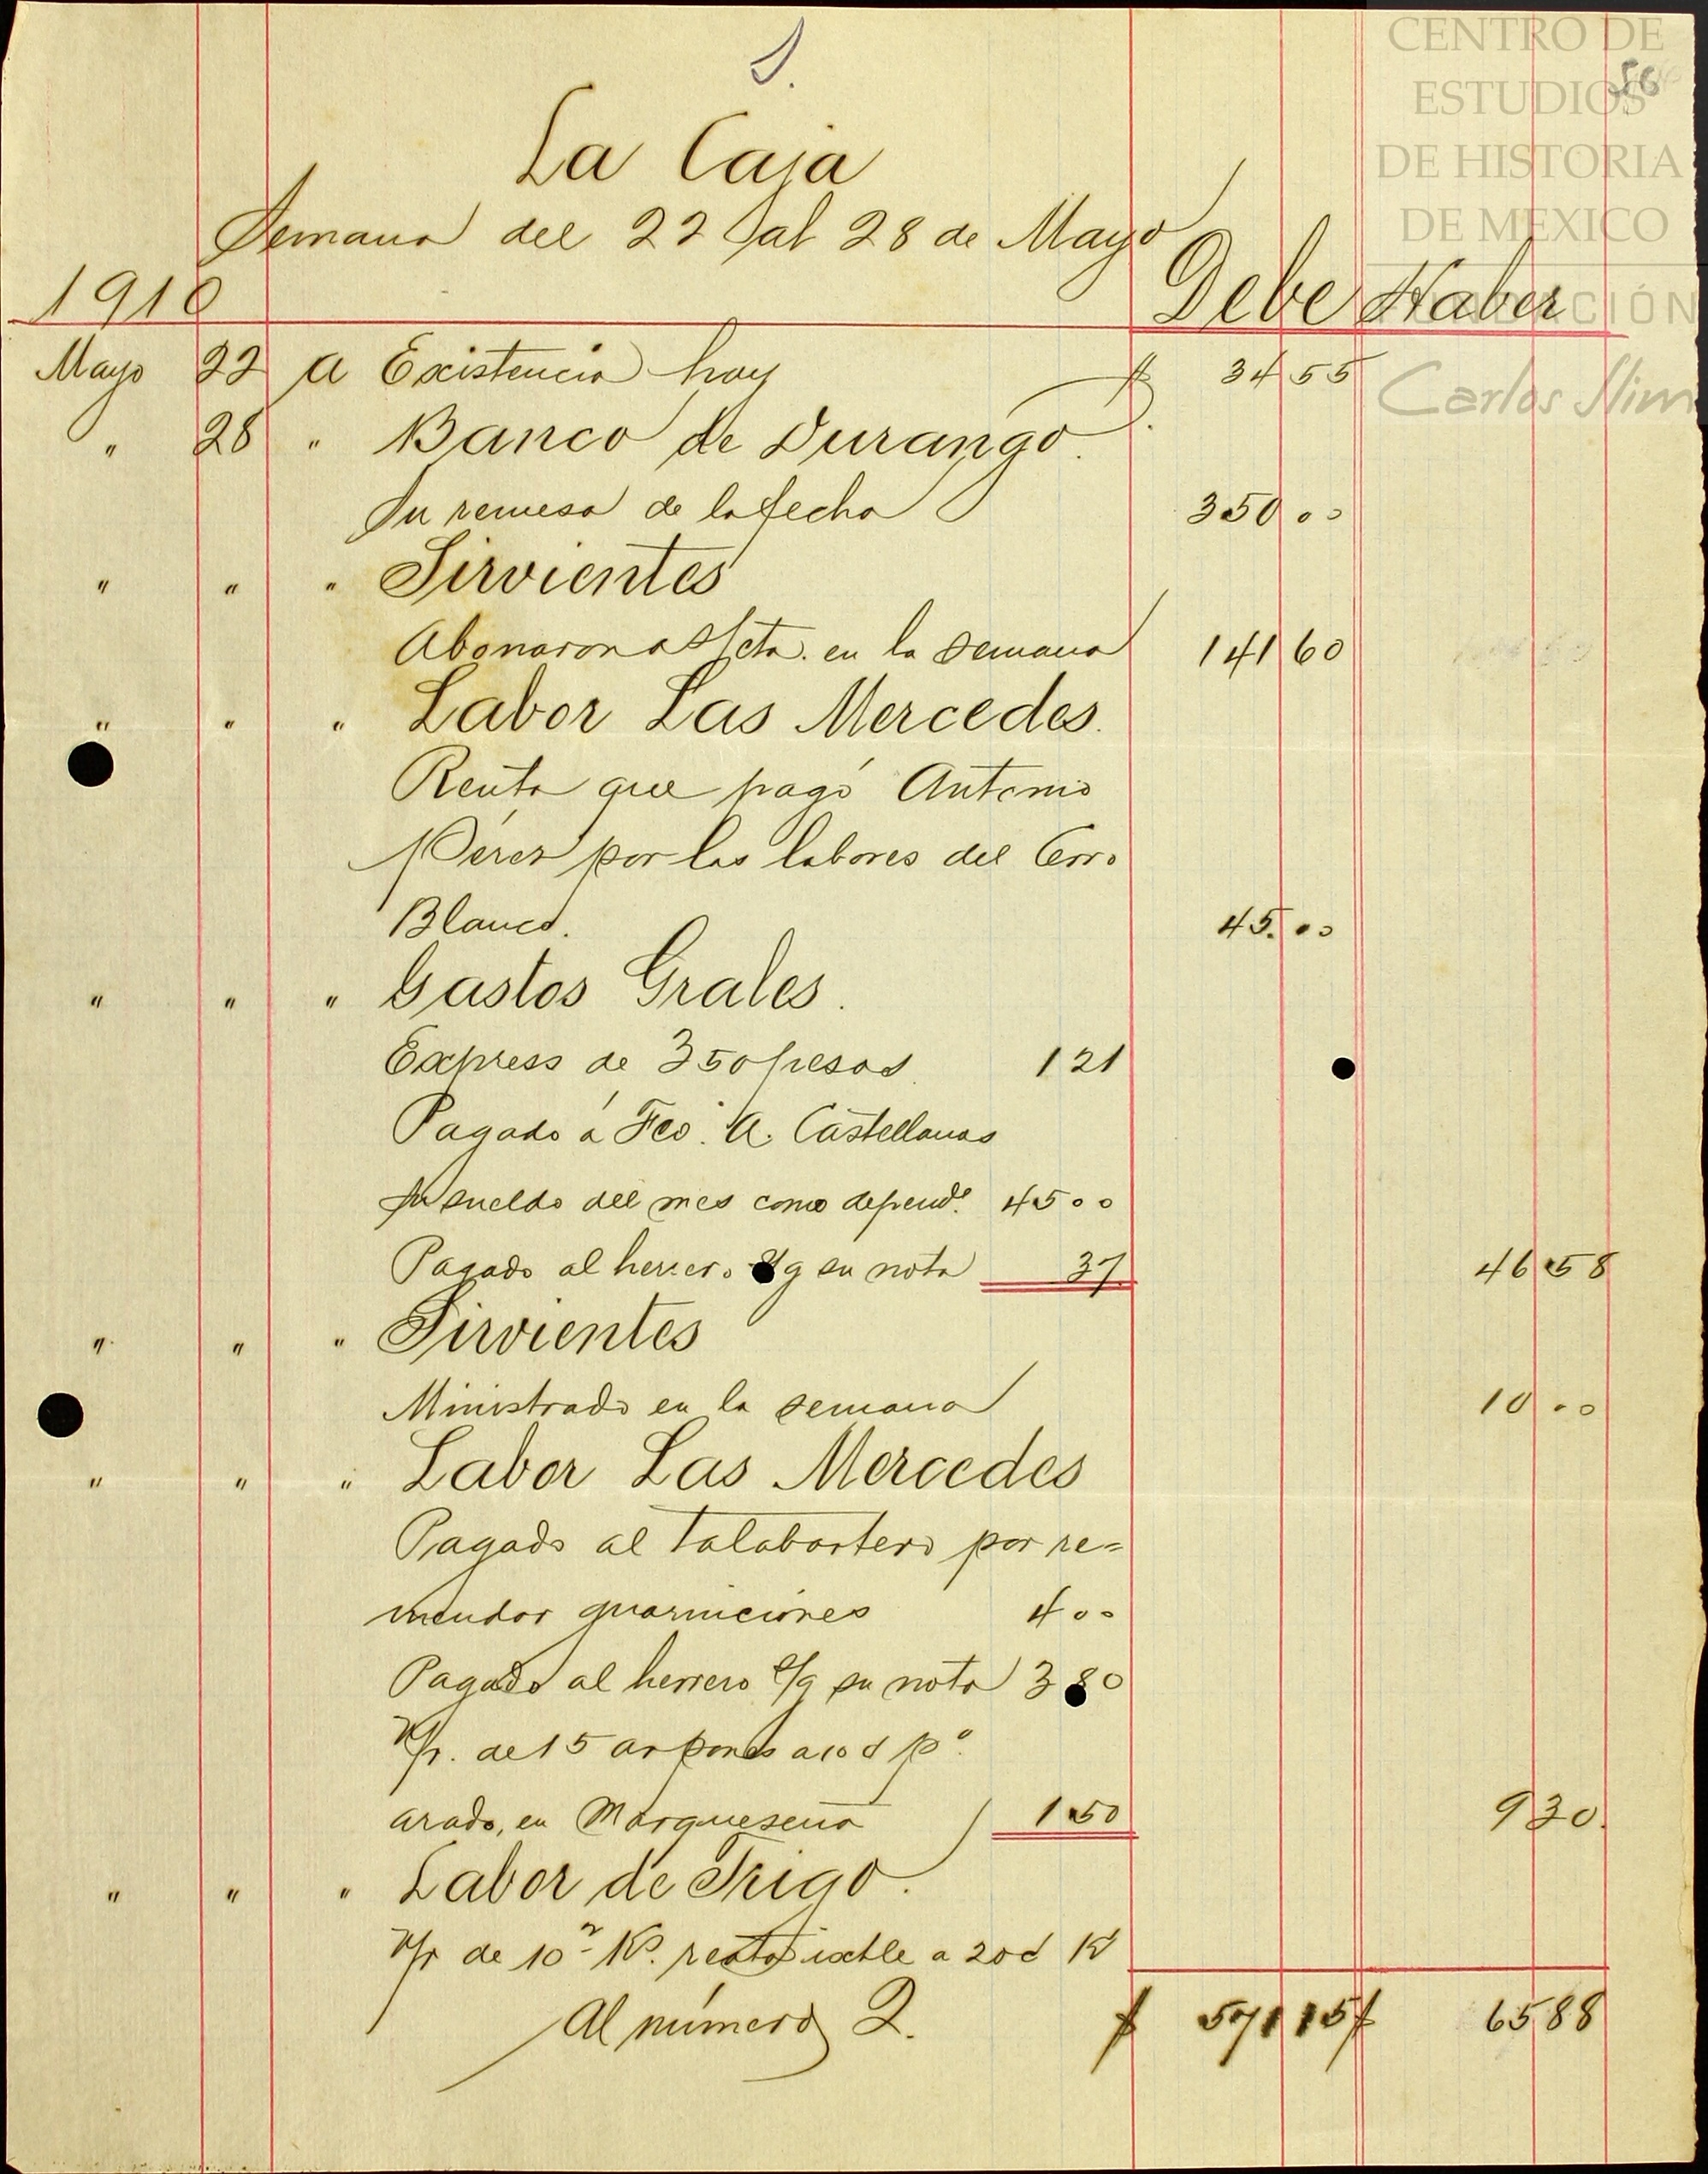 1.
56
La Caja
Semana del 22 al 28 de Mayo
1910 Debe Haber
Mayo 22 a Existencia hoy $ 34 55
" 28 " Banco de Durango.
Su remesa de la fecha 350 00
" " " Sirvientes
Abonaron a s/cta. en la semana 141 60
" " " Labor Las Mercedes.
Renta que pagó Antonio
Pérez por las labores del Cerro
Blanco. 45.00
" " " Gastos Grales.
Express de 350 pesos. 1 21
Pagado á Fco. A. Castellanos
su sueldo del mes como depend.e 45 00
Pagado al herrero s/g su nota 37 46 58
" " " Sirvientes
Ministrado en la semana 10 00
" " " Labor Las Mercedes
Pagado al talabartero por re=
mendar guarniciones 4 00
Pagado al herrero s/g su nota 3 80
V/r. de 15 arpones a 10 ¢ p.a
arado, en Marqueseña 1 50 9 30.
" " " Labor de Trigo.
V/r de 10 Ks. reata ixtle a 20 ¢ K
Al número 2. $ 571 15 $ 65 88
CENTRO DE
ESTUDIOS
DE HISTORIA
DE MEXICO
FUNDACIÓN
Carlos Slim